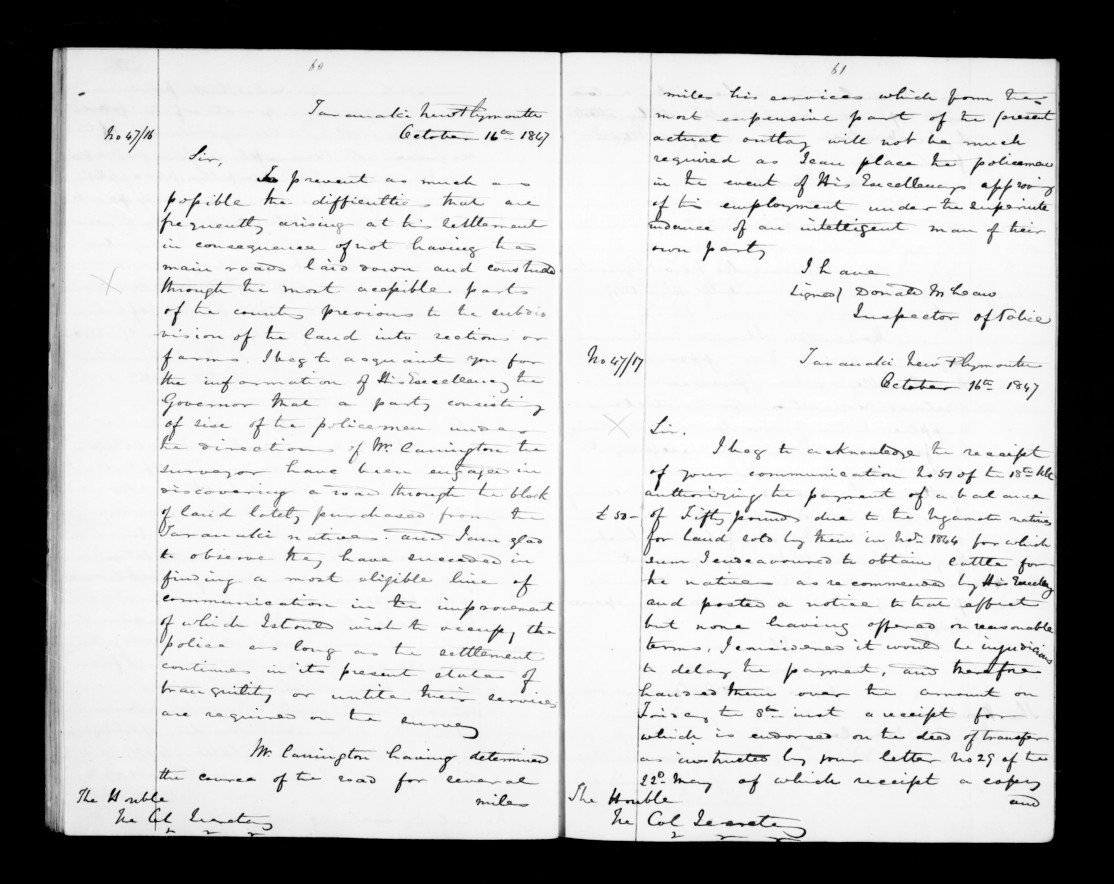 60
Taranaki New Plymouth
No 47/16 October 16th 1847
Sir,
To prevent as much as
possible the difficulties that are
frequently arising at this settlement
in consequence of not having the
main roads laid down and constructed
through the most accessible parts
of the country previous to the subdi
vision of the land into sections or
farms. I beg to acquaint you for
the information of His Excellency the
Governor that a party consisting
of six of the policemen under
the directions of Mr. Carrington the
surveyor have been engaged in
discovering a road through the block
of land lately purchased from the
Taranaki natives. and I am glad
to observe they have succeeded in
finding a most eligible line of
communication in the improvement
of which I should wish to occupy the
police as long as the settlement
continues in its present state of
tranquility or until their services
are required on the survey
Mr. Carrington having determined
the course of the road for several
miles
The Honble
The Col Secretary
61
miles his services which form the
most expensive part of the present
actual outlay will not be much
required as I can place the policemen
in the event of His Excellency approving
of this employment under the superinte
ndance of an intelligent man of their
own party
I have
Signed/ Donald McLean
Inspector of Police
No 47/17 Taranaki New Plymouth
October 16th 1847
Sir.
I beg to acknowledge the receipt
of your communication No 51 of the 18th Ulto
authorizing the payment of a balance
£50- of Fifty pounds due to the Ngamotu natives
for land sold by them in Novr. 1844 for which
sum I endeavoured to obtain Cattle for
the natives as recommended by His Excellency
and posted a notice to that effect
but none having offered on reasonable
terms, I considered it would be injudicious
to delay the payment, and therefore
handed them over the amount on
Friday the 8th inst a receipt for
which is endorsed on the deed of transfer
as instructed by your letter No 29 of the
22d May of which receipt a copy
and
The Honble
The Col Secretary